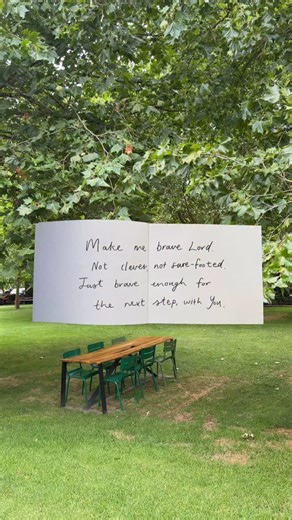 Make me brave Lord.
Not clever, not sure-footed.
Just brave enough for
the next step, with You.